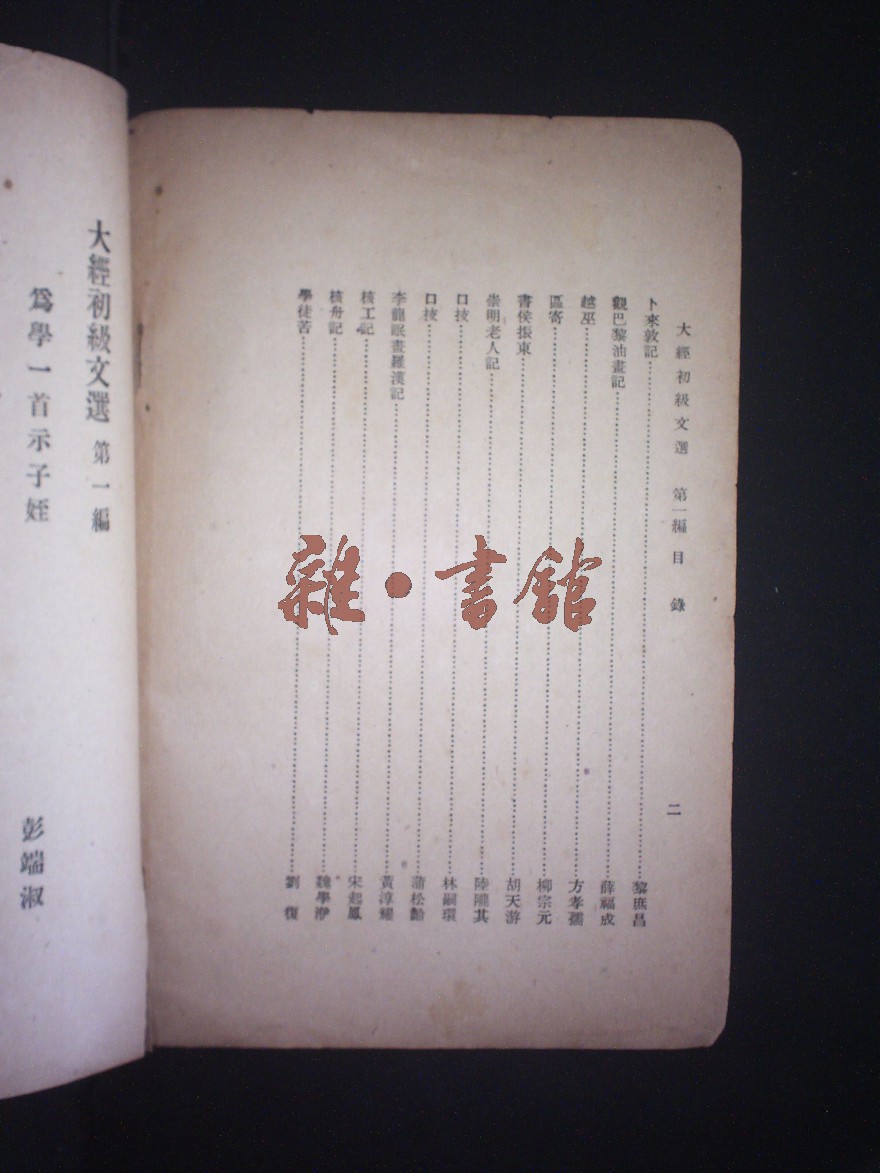 大經初級文選 第一編 目錄 二
卜來敦記 黎庶昌
觀巴黎油畫記 薛福成
越巫 方孝孺
區寄 柳宗元
書侯振東 胡天游
崇明老人記 陸隴其
口技 林嗣環
口技 蒲松齡
李龍眠畫羅漢記 黃淳耀
核工記 宋起鳳
核舟記 魏學洢
學徒苦 劉復
大經初級文選 第一編
爲學一首示子姪 彭端淑
雜·書館